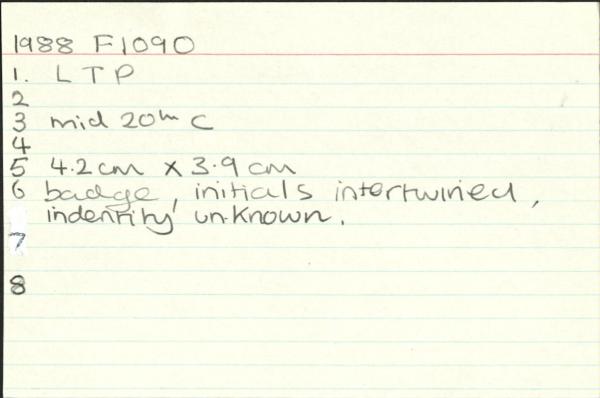 1988 F1090
1. LTP
2
3 mid 20th C
4
5 4.2cm x 3.9cm
6 badge, initials intertwined,
indentity unknown.
7
8